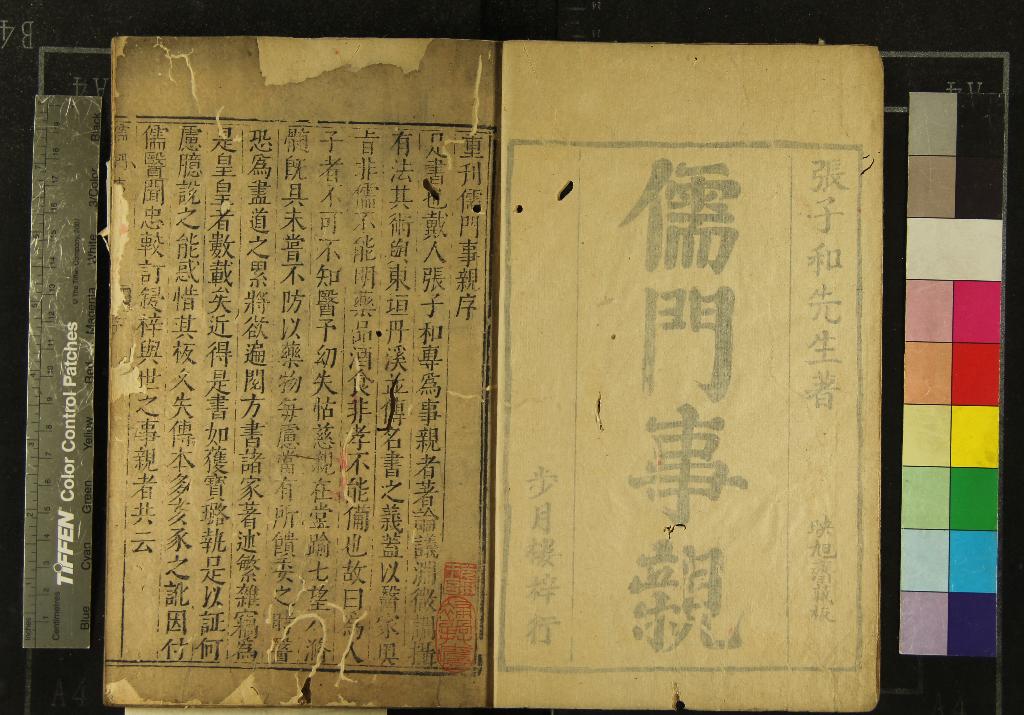 張子和先生著
映旭齋藏板
儒門事親
步月樓梓行
重刊儒門事親序
是書也戴人張子和專爲事親者著論議淵微調攝
有法其術與東垣丹溪並傳名書之義蓋以醫家奧
旨非儒不能明藥品酒食非孝不能備也故曰爲人
子者不可不知醫予幼失怙慈親在堂踰七望八滫
髓旣具未嘗不防以藥物每慮當有所饋委之時醫
恐爲盡道之累將欲遍閱方書諸家著述繁雜竊爲
是皇皇者數載矣近得是書如獲寶璐執是以証何
慮臆說之能惑惜其板久失傳本多亥豕之訛因付
儒醫聞忠較訂鋟梓與世之事親者共云
TIFFEN Color Control Patches
© The Tiffen Company, 2000
Inches
Centimetres
Blue
Cyan
Green
Yellow
Red
Magenta
White
3/Color
Black
B4
A4
A4
A4
A4